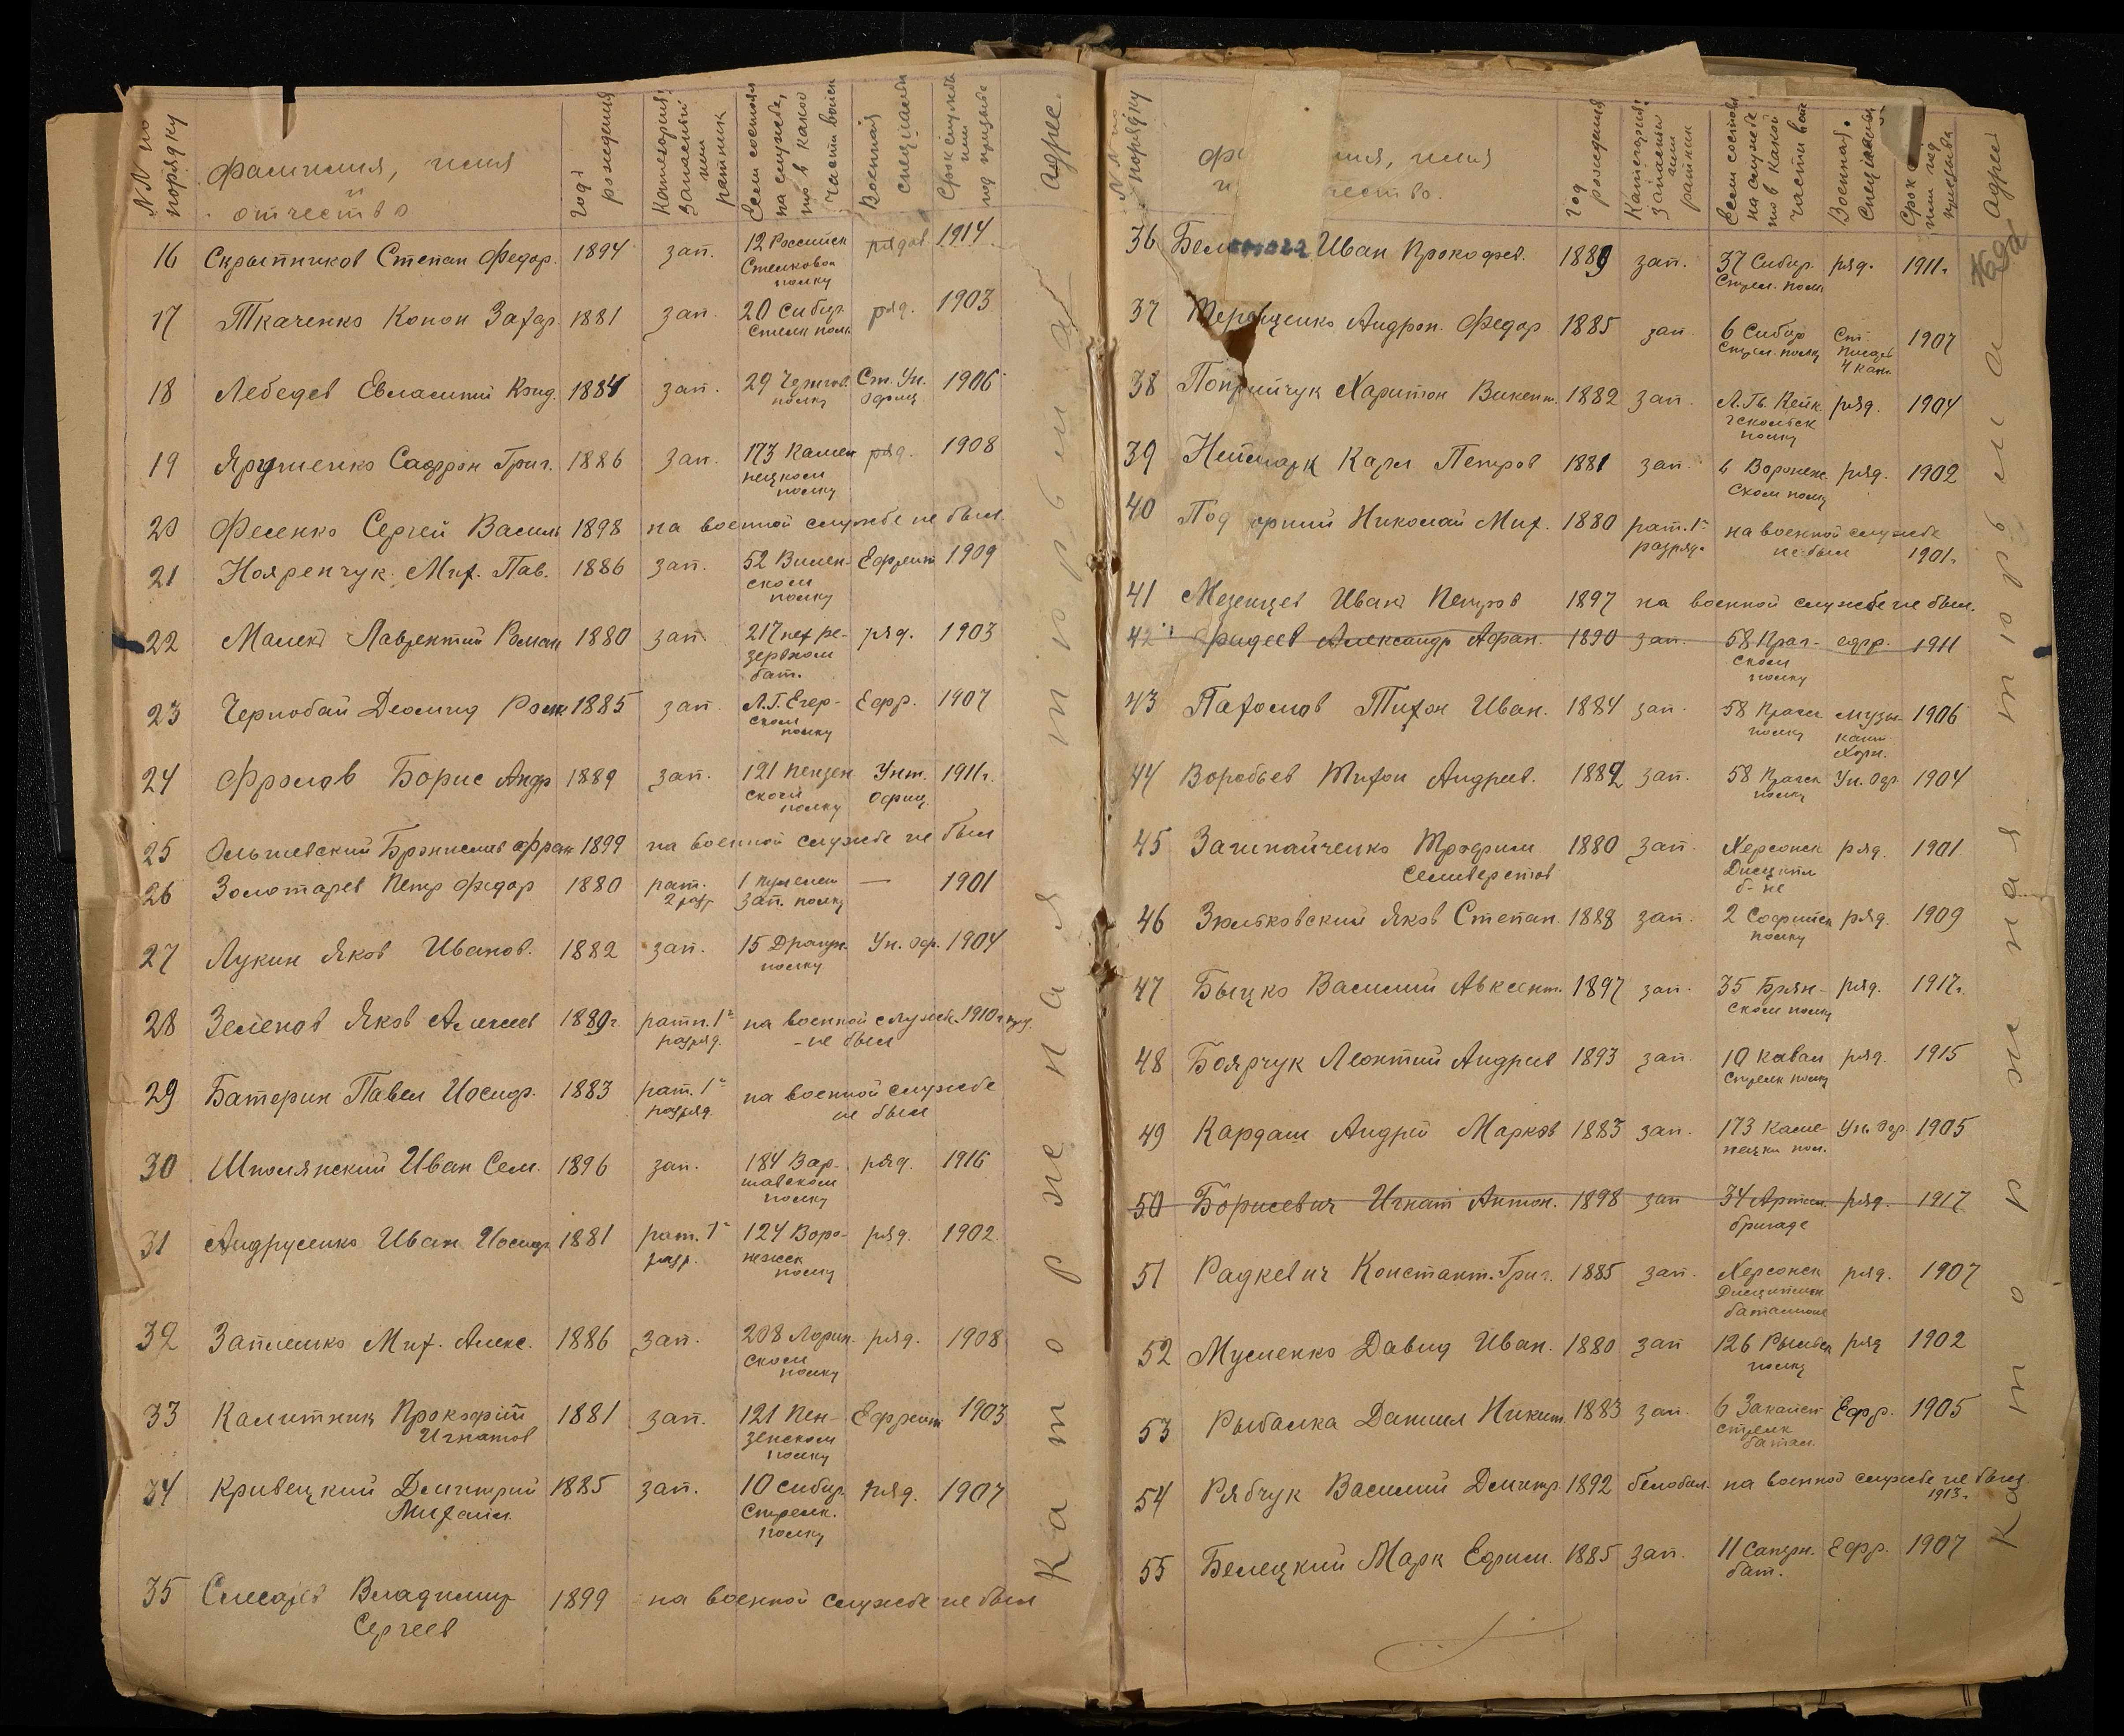 №№ по порядку
фамилия, имя и отчество
Год рождения
Категория: запасный или ратник
Если состоял на службе, то в какой части войск
Военная специальн
Срок службы или год призыва
Адрес.
16 Скрыпников Степан Федор. 1894 зап. 12 Российск рядов. 1914
Стрелковом
полку
17 Ткаченко Конон Захар. 1881 зап. 20 Сибир. ряд. 1903
Стрелк полк
18 Лебедев Евлампий Конд. 1884 зап. 29 Чернигов. Ст. Ун. 1906
полку Офиц.
19 Ярушенко Софрон Григ. 1886 зап. 173 Камен ряд. 1908
нецком
полку
20 Фесенко Сергей Василь 1898 на военной службе не был.
21 Нояренчук Мих. Пав. 1886 зап. 52 Вилен- Ефрейт 1909
ском
полку
22 Малект Лаврентий Роман 1880 зап. 217 пех ре- ряд. 1903
зервном
бат.
23 Чернобай Деомид Ром 1885 зап. Л.Г. Егер- Ефр. 1907
ском
полку
24 Фролов Борис Андр 1889 зап. 121 Пензен Унт. 1911г.
ском Офиц.
полку
25 Ольшевский Бронислав Фран 1899 на военной службе не был
26 Золотарев Петр Федор 1880 рат. 1 пулемет — 1901
2 разр зап. полку
27 Лукин Яков Иванов. 1882 зап. 15 Драгун. Ун. Оф. 1904
полку
28 Зеленов Яков Алексеев 1889г. ратн. 1й на военной служ. 1910г
разряд. -не был
29 Батерин Павел Иосиф. 1883 рат. 1й на военной службе
разряд. не был
30 Шполянский Иван Сем. 1896 зап. 184 Вар- ряд. 1916
шавском
полку
31 Андрусенко Иван Иосиф 1881 рат. 1й 124 Воро- ряд. 1902.
разр. нежск
полку
32 Запленко Мих. Алекс. 1886 зап. 208 Лорий- ряд. 1908
ском
полку
33 Калитник Прокофий 1881 зап. 121 Пен- Ефрейт 1903
Игнатов зенском
полку
34 Кривецкий Дмитрий 1885 зап. 10 сибир. ряд. 1907
Михаил. Стрелк.
полку
35 Слесарев Владимир 1899 на военной службе не был
Сергеев
Каторжная тюрьма
№№ по порядку
фа ия, имя
и чество.
Год рождения
Категория: запасный или ратник
Если состоял на службе то в какой части вой
Военная. Специальн
Срок или год призыва
Адрес
36 Бел Иван Прокофев. 1889 зап. 37 Сибир. ряд. 1911г.
Стрел. полк
37 Терещенко Андрон. Федор 1885 зап. 6 Сибир Ст. 1907
Стрел. полку писарь
38 Поприйчук Харитон Викент. 1882 зап. Л. Гв. Кекс ряд. 1904
гольмск
полку
39 Неймарк Карл Петров 1881 зап. 4 Воронеж. ряд. 1902
ском полку
40 Под орный Николай Мих. 1880 рат. 1й на военной службе
разряд. не был 1901г.
41 Мезенцев Иван Петров 1897 на военной службе не был.
42 Фадеев Александр Афан. 1890 зап. 58 Праг- ефр. 1911
ском
полку
43 Пахомов Тихон Иван. 1884 зап. 58 Прагск музы- 1906
полку кант
Хорн.
44 Воробьев Тихон Андреев. 1882 зап. 58 Прагск Ун. Оф. 1904
полку
45 Зашпайченко Трофим 1880 зап. Херсонск ряд. 1901
Селиверстов Дисципл
б-не
46 Зюльковский Яков Степан. 1888 зап. 2 Софийск ряд. 1909
полку
47 Быцко Василий Авксент. 1897 зап. 35 Брян- ряд. 1917г.
ском полку
48 Боярчук Леонтий Андреев 1893 зап. 10 кавал ряд. 1915
Стрелк полку
49 Кардаш Андрей Марков 1883 зап. 173 Каме- Ун. Оф. 1905
нецком пол.
50 Борисевич Игнат Антон. 1898 зап 34 Артил. ряд. 1917
бригаде
51 Радкевич Константин. Григ. 1885 зап. Херсонск ряд. 1907
Дисциплин
батальоне
52 Мусиенко Давид Иван. 1880 зап 126 Рыльск ряд 1902
полку
53 Рыбалка Даниил Никит. 1883 зап. 6 Закаспт Ефр. 1905
стрелк
батал.
54 Рябчук Василий Дмитр 1892 белобил. на военной службе не был.
1913г.
55 Белецкий Марк Ефим. 1885 зап. 11 Саперн. Ефр. 1907
бат.
Каторжная тюрьма